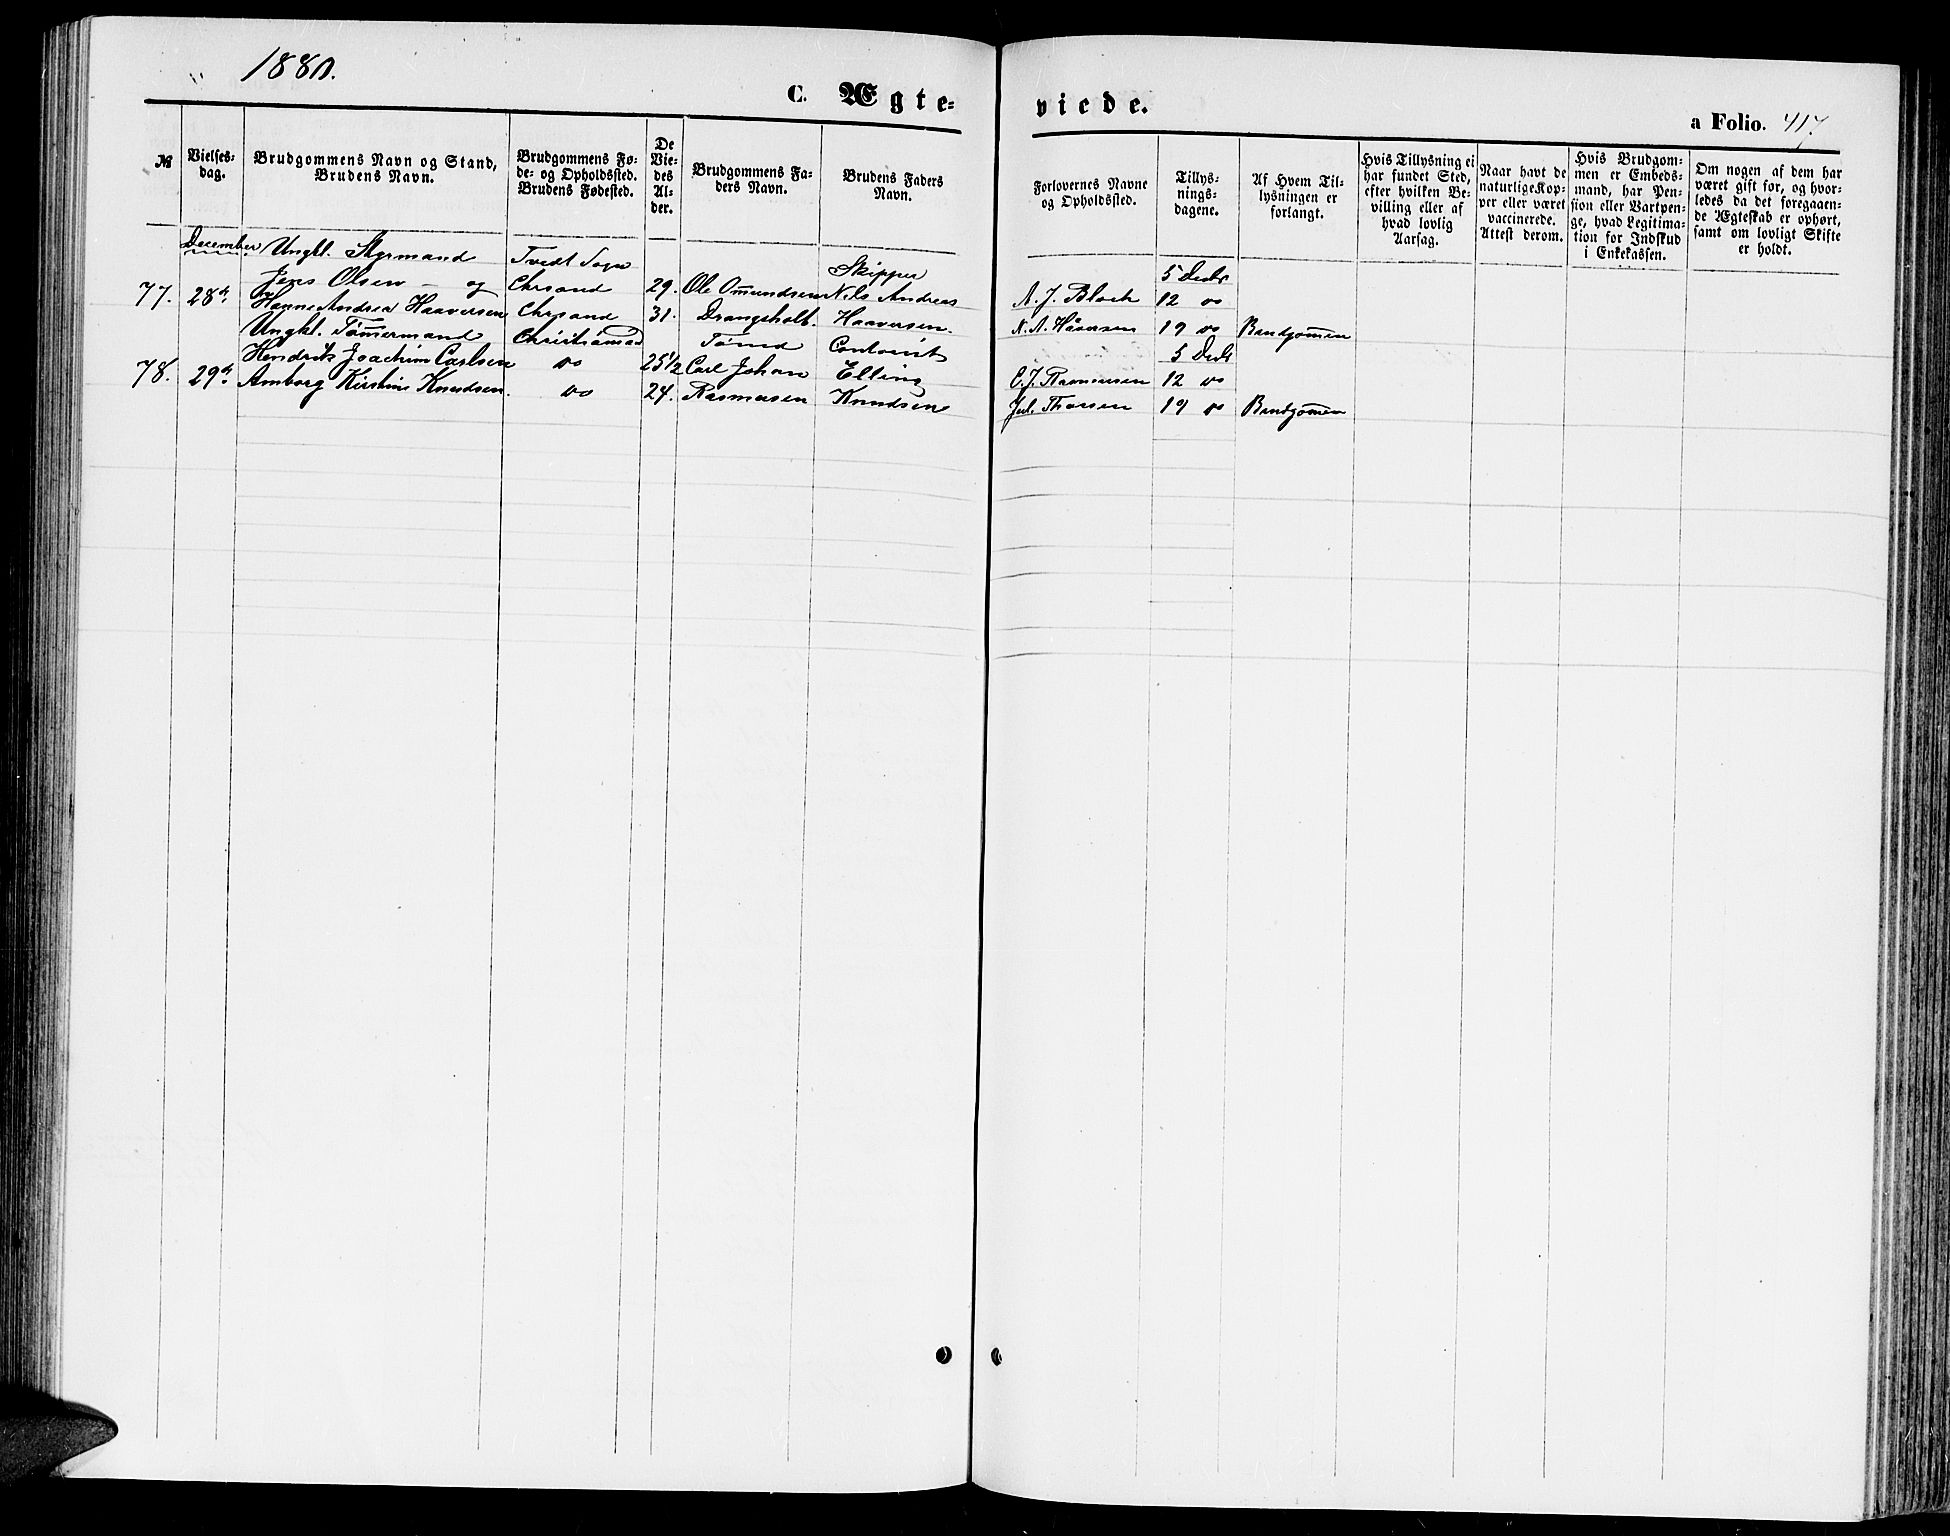 1880.
C. Ægte- viede.
a Folio. 417
№
Vielses-
dag.
Brudgommens Navn og Stand,
Brudens Navn.
Brudgommens Fø-
de- og Opholdssted.
Brudens Fødested.
De
Vie-
des
Al-
der.
Brudgommens Fa-
ders Navn.
Brudens Faders
Navn.
Forlovernes Navne
og Opholdssted.
Tillys-
nings-
dagene.
Af Hvem Til-
lysningen er
forlangt.
Hvis Tillysning ei
har fundet Sted,
efter hvilken Be-
villing eller af
hvad lovlig
Aarsag.
Naar havt de
naturlige Kop-
per eller været
vaccinerede.
Attest derom.
Hvis Brudgom-
men er Embeds-
mand, har Pen-
sion eller Vartpen-
ge, hvad Legitima-
tion for Indskud
i Enkekassen.
Om nogen af dem har
været gift før, og hvor-
ledes da det foregaaen-
de Ægteskab er ophørt,
samt om lovligt Skifte
er holdt.
December
77. 28de
Ungkl. Styrmand
Jens Olsen – og
Hanne Andrea Haaversen
Tvedt Sogn
Chrsand
Chrsand
29.
31.
Ole Omundsen
Drangsholt.
Skipper
Nils Andreas
Haaversen.
A. J. Bloch
N. A. Håversen
5 Decbr
12 do
19 do
Brudgommen
78. 29de
Ungkl. Tømmermand
Hendrik Joachim Carlsen
Amborg Kirstine Knudsen.
Christiansand
do
do
25½
24.
Tømd
Carl Johan
Rasmusen
Contorist
Elling
Knudsen
C. J. Rasmusen
Jul. Thorsen
5 Decbr
12 do
19 do
Brudgommen